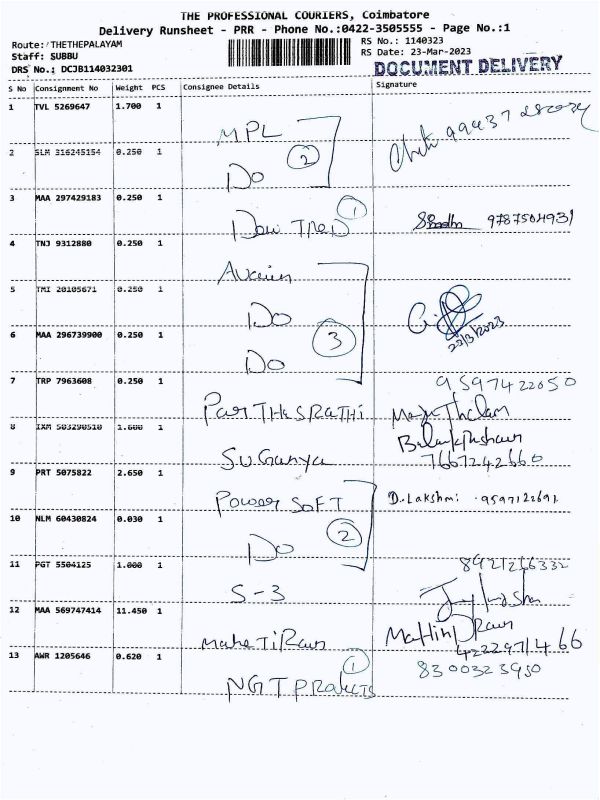 THE PROFESSIONAL COURIERS, Coimbatore
Delivery Runsheet - PRR - Phone No.:0422-3505555 - Page No.:1
Route: THETHEPALAYAM RS No.: 1140323
Staff: SUBBU RS Date: 23-Mar-2023
DRS No.: DCJB114032301 DOCUMENT DELIVERY
S No Consignment No Weight PCS Consignee Details Signature
1 TVL 5269647 1.700 1
MPL
2 SLM 316245154 0.250 1
2
Do
3 MAA 297429183 0.250 1
1
9787504931
4 TNJ 9312880 0.250 1
5 TMI 20105671 0.250 1
Do
6 MAA 296739900 0.250 1
3
Do
7 TRP 7963608 0.250 1
9597422050
ParTHaSRATHi
8 IXM 503290510 1.600 1
SuGanya 7667242660
9 PRT 5075822 2.650 1
Power SoFT D.Lakshmi: 9597122691
10 NLM 60430824 0.030 1
Do 2
11 PGT 5504125 1.000 1
S-3
12 MAA 569747414 11.450 1
13 AWR 1205646 0.620 1
1 8300323950
NGT Products